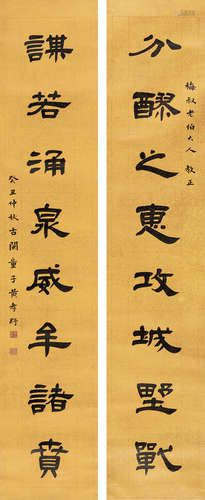 分醪之惠攻城墅戰
梅叔老伯大人教正
謀若涌泉威牟諸賁
癸丑仲秋古閩童子黃孝紓